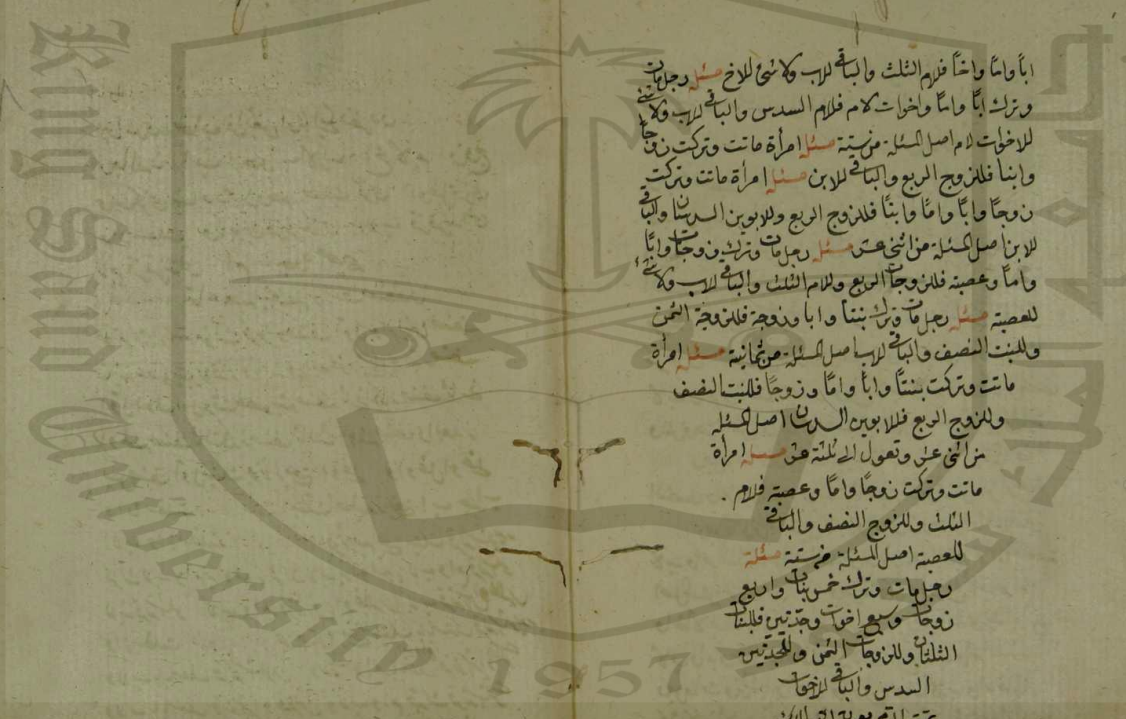 اباً واماً واخاً فللام الثلث والباقي للاب ولا شئ للاخ مسئلة رجل مات
وترك اباً واماً واخوات لام فللام السدس والباقي للاب ولا شئ
للاخوات لام اصل المسئلة من ستة مسئلة امرأة ماتت وتركت زوجاً
وابنا فللزوج الربع والباقي للابن مسئلة امرأة ماتت وتركت
زوجاً واباً واماً وابناً فللزوج الربع وللابوين السدسان والباقي
للابن اصل المسئلة من اثنى عشر مسئلة رجل مات وترك زوجات واباً
واماً وعصبة فللزوجات الربع وللام الثلث والباقي للاب ولا شئ
للعصبة مسئلة رجل مات وترك بنتا وابا وزوجة فللزوجة الثمن
وللبنت النصف والباقي للاب اصل المسئلة من ثمانية مسئلة امرأة
ماتت وتركت بنتاً واباً واماً وزوجاً فللبنت النصف
وللزوج الربع فللابوين السدسان اصل المسئلة
من اثنى عشر وتعول الى ثلثة عشر مسئلة امرأة
ماتت وتركت زوجاً واماً وعصبة فللام
الثلث وللزوج النصف والباقي
للعصبة اصل المسئلة من ستة مسئلة
رجل مات وترك خمس بنات واربع
زوجات وسبع اخوات وجدتين فللبنات
الثلثان وللزوجات الثمن وللجدتين
السدس والباقي للاخوات
King Saud University
1957
جامعة الملك سعود